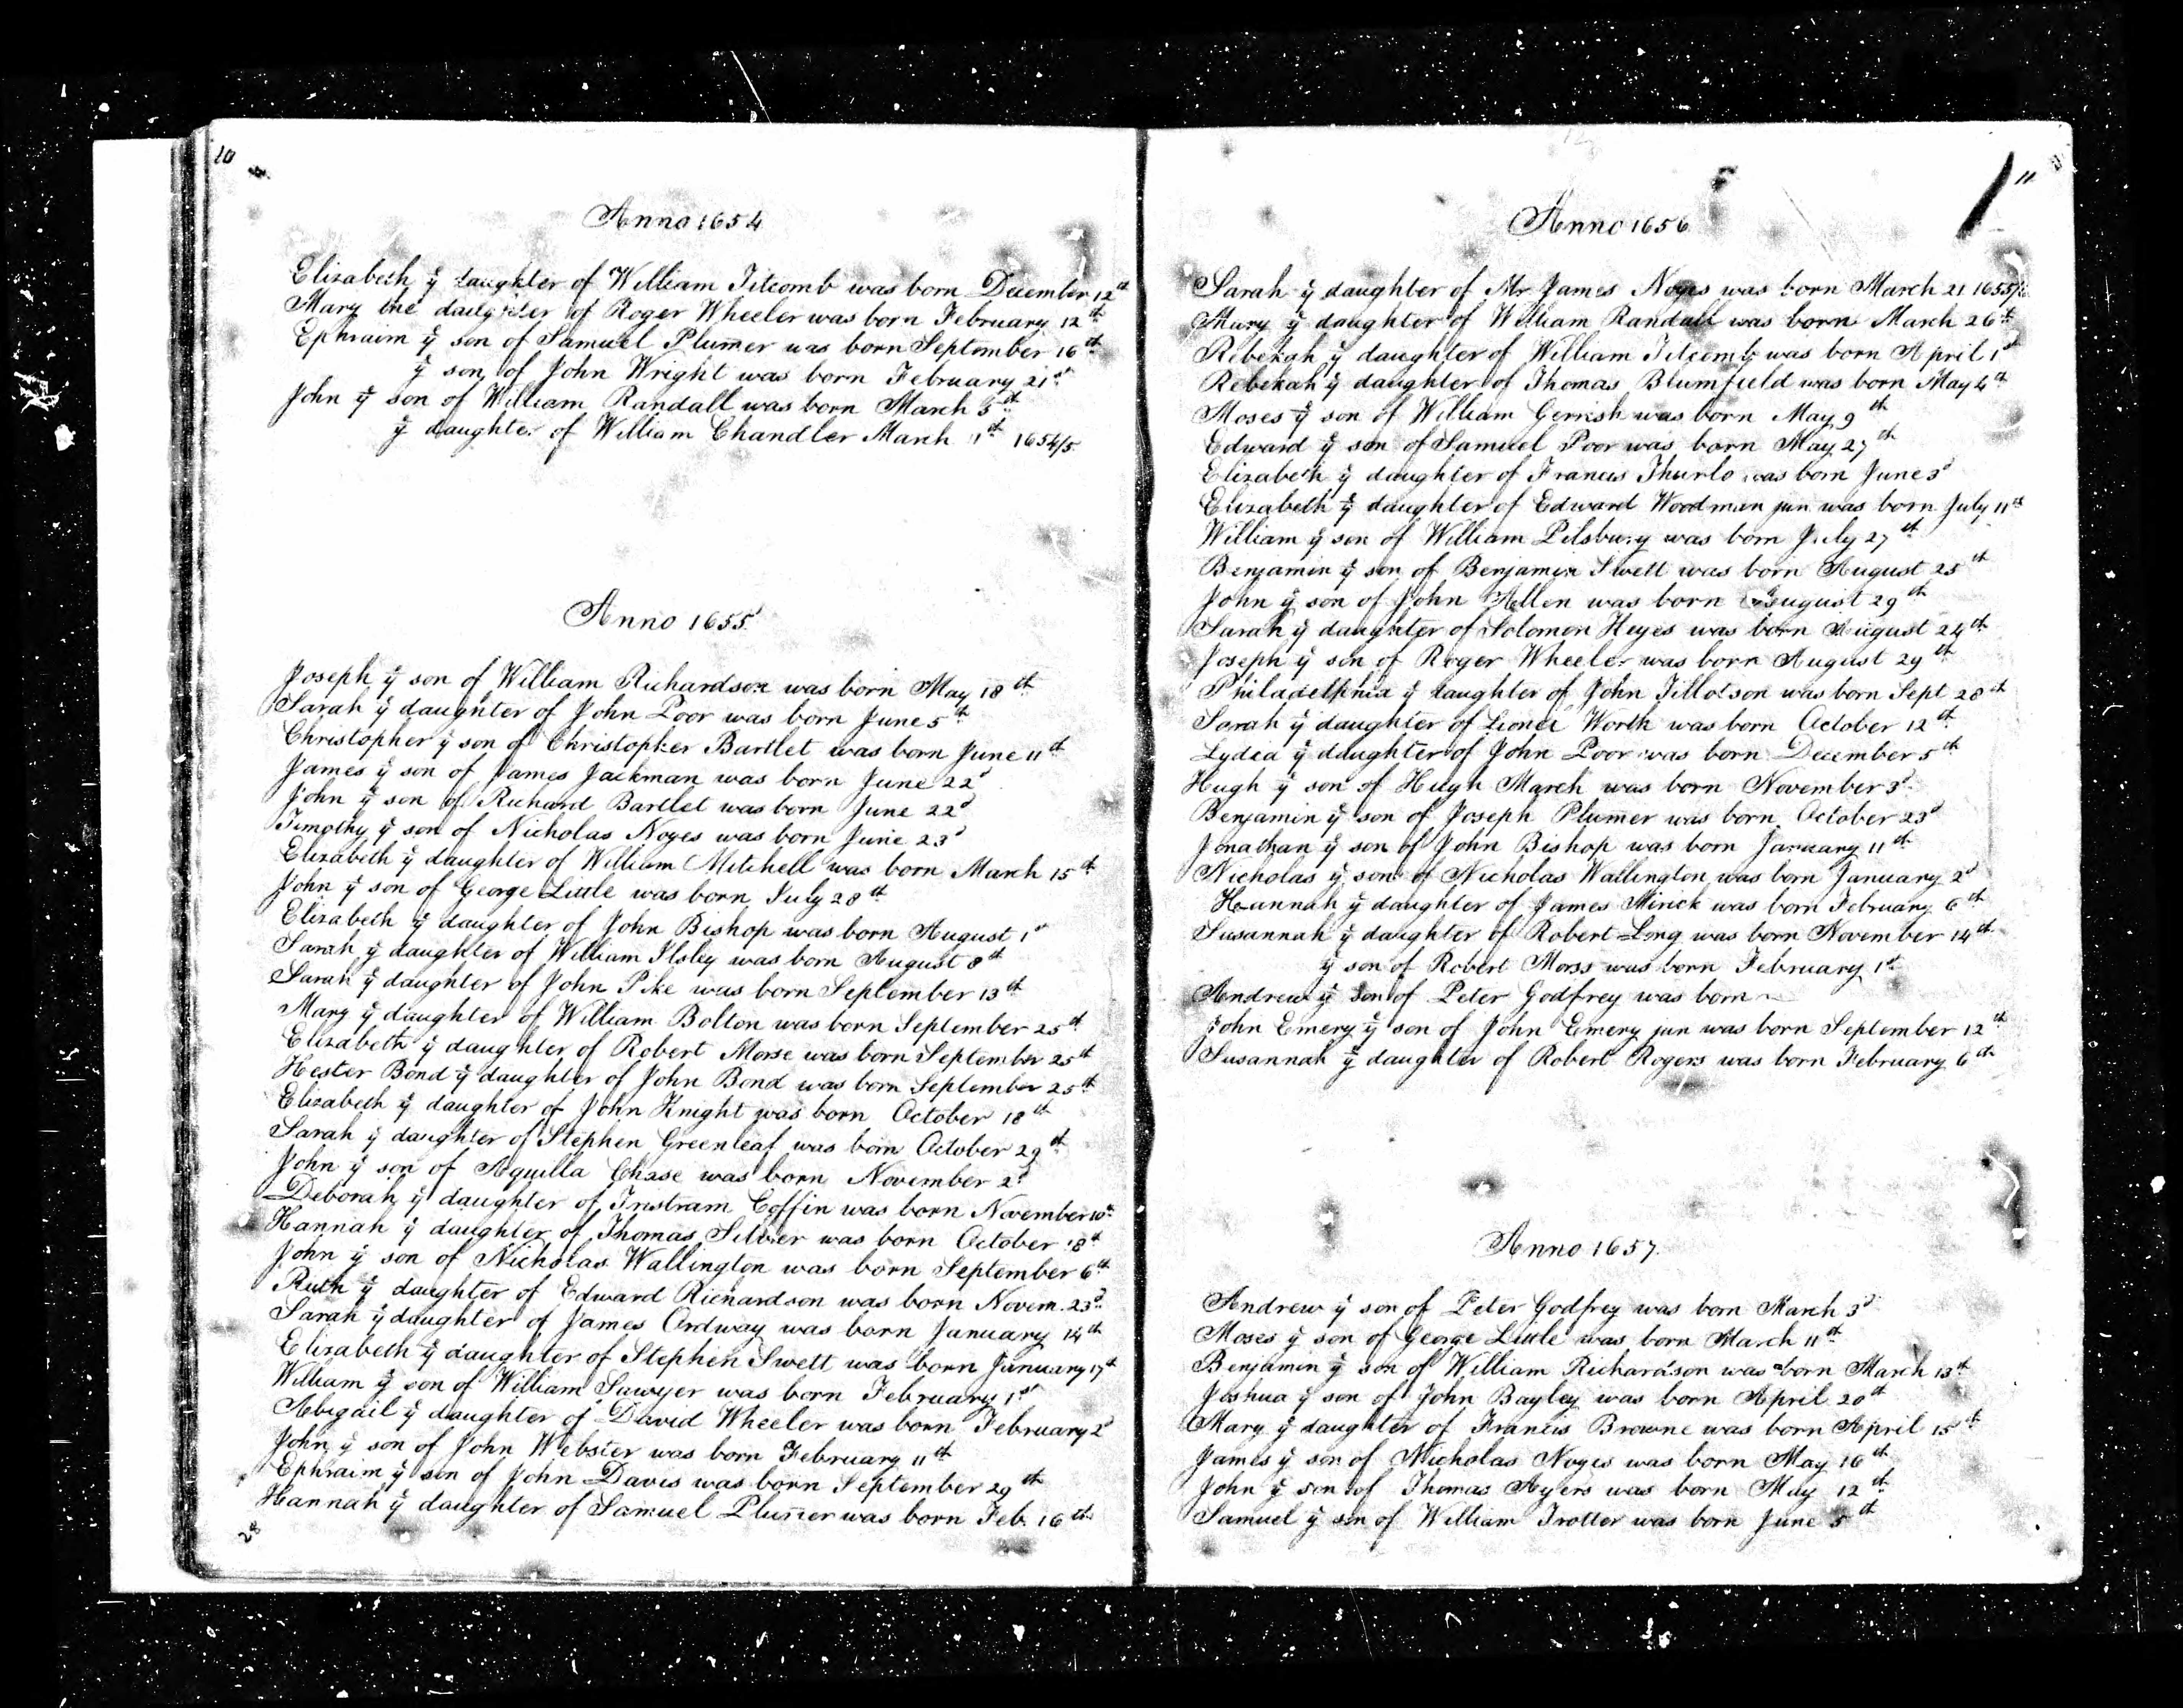 10
Anno 1654
Elizabeth ÿ daughter of William Titcomb was born December 12th
Mary the daughter of Roger Wheeler was born February 12th
Ephraim ÿ son of Samuel Plum̄er was born September 16th
ÿ son of John Wright was born February 21st
John ÿ son of William Randall was born March 5th
ÿ daughter of William Chandler March 1st 1654/5
Anno 1655
Joseph ÿ son of William Richardson was born May 18th
Sarah ÿ daughter of John Poor was born June 5th
Christopher ÿ son of Christopher Bartlet was born June 11th
James ÿ son of James Jackman was born June 22d
John ÿ son of Richard Bartlet was born June 22d
Timothy ÿ son of Nicholas Noyes was born June 23d
Elizabeth ÿ daughter of William Mitchell was born March 15th
John ÿ son of George Little was born July 28th
Elizabeth ÿ daughter of John Bishop was born August 1st
Sarah ÿ daughter of William Ilsley was born August 8th
Sarah ÿ daughter of John Pike was born September 13th
Mary ÿ daughter of William Bolton was born September 25th
Elizabeth ÿ daughter of Robert Morse was born September 25th
Hester Bond ÿ daughter of John Bond was born September 25th
Elizabeth ÿ daughter of John Knight was born October 18th
Sarah ÿ daughter of Stephen Greenleaf was born October 29th
John ÿ son of Aquilla Chase was born November 2d
Deborah ÿ daughter of Tristram Coffin was born November 10th
Hannah ÿ daughter of Thomas Silver was born October 18th
John ÿ son of Nicholas Wallington was born September 6th
Ruth ÿ daughter of Edward Richardson was born Novem. 23d
Sarah ÿ daughter of James Ordway was born January 14th
Elizabeth ÿ daughter of Stephen Swett was born January 17th
William ÿ son of William Sawyer was born February 1st
Abigail ÿ daughter of David Wheeler was born February 2d
John ÿ son of John Webster was born February 11th
Ephraim ÿ son of John Davis was born September 29th
Hannah ÿ daughter of Samuel Plum̄er was born Feb. 16th
28
11
Anno 1656
Sarah ÿ daughter of Mr James Noyes was born March 21 1655/6
Mary ÿ daughter of William Randall was born March 26th
Rebekah ÿ daughter of William Titcomb was born April 1st
Rebekah ÿ daughter of Thomas Blumfield was born May 4th
Moses ÿ son of William Gerrish was born May 9th
Edward ÿ son of Samuel Poor was born May 27th
Elizabeth ÿ daughter of Francis Thurlo was born June 3d
Elizabeth ÿ daughter of Edward Woodman jun was born July 11th
William ÿ son of William Pilsbury was born July 27th
Benjamin ÿ son of Benjamin Swett was born August 25th
John ÿ son of John Allen was born August 29th
Sarah ÿ daughter of Solomon Keyes was born August 24th
Joseph ÿ son of Roger Wheeler was born August 29th
Philadelphia ÿ daughter of John Tillotson was born Sept 28th
Sarah ÿ daughter of Lionel Worth was born October 12th
Lydia ÿ daughter of John Poor was born December 5th
Hugh ÿ son of Hugh March was born November 3d
Benjamin ÿ son of Joseph Plum̄er was born October 23d
Jonathan ÿ son of John Bishop was born January 11th
Nicholas ÿ son of Nicholas Wallington was born January 2d
Hannah ÿ daughter of James Mirick was born February 6th
Susannah ÿ daughter of Robert Long was born November 14th
ÿ son of Robert Morss was born February 1st
Andrew ÿ son of Peter Godfrey was born
John Emery ÿ son of John Emery jun was born September 12th
Susannah ÿ daughter of Robert Rogers was born February 6th
Anno 1657.
Andrew ÿ son of Peter Godfrey was born March 3d
Moses ÿ son of George Little was born March 11th
Benjamin ÿ son of William Richardson was born March 13th
Joshua ÿ son of John Bayley was born April 20th
Mary ÿ daughter of Francis Browne was born April 15th
James ÿ son of Nicholas Noyes was born May 16th
John ÿ son of Thomas Ayers was born May 12th
Samuel ÿ son of William Trotter was born June 5th